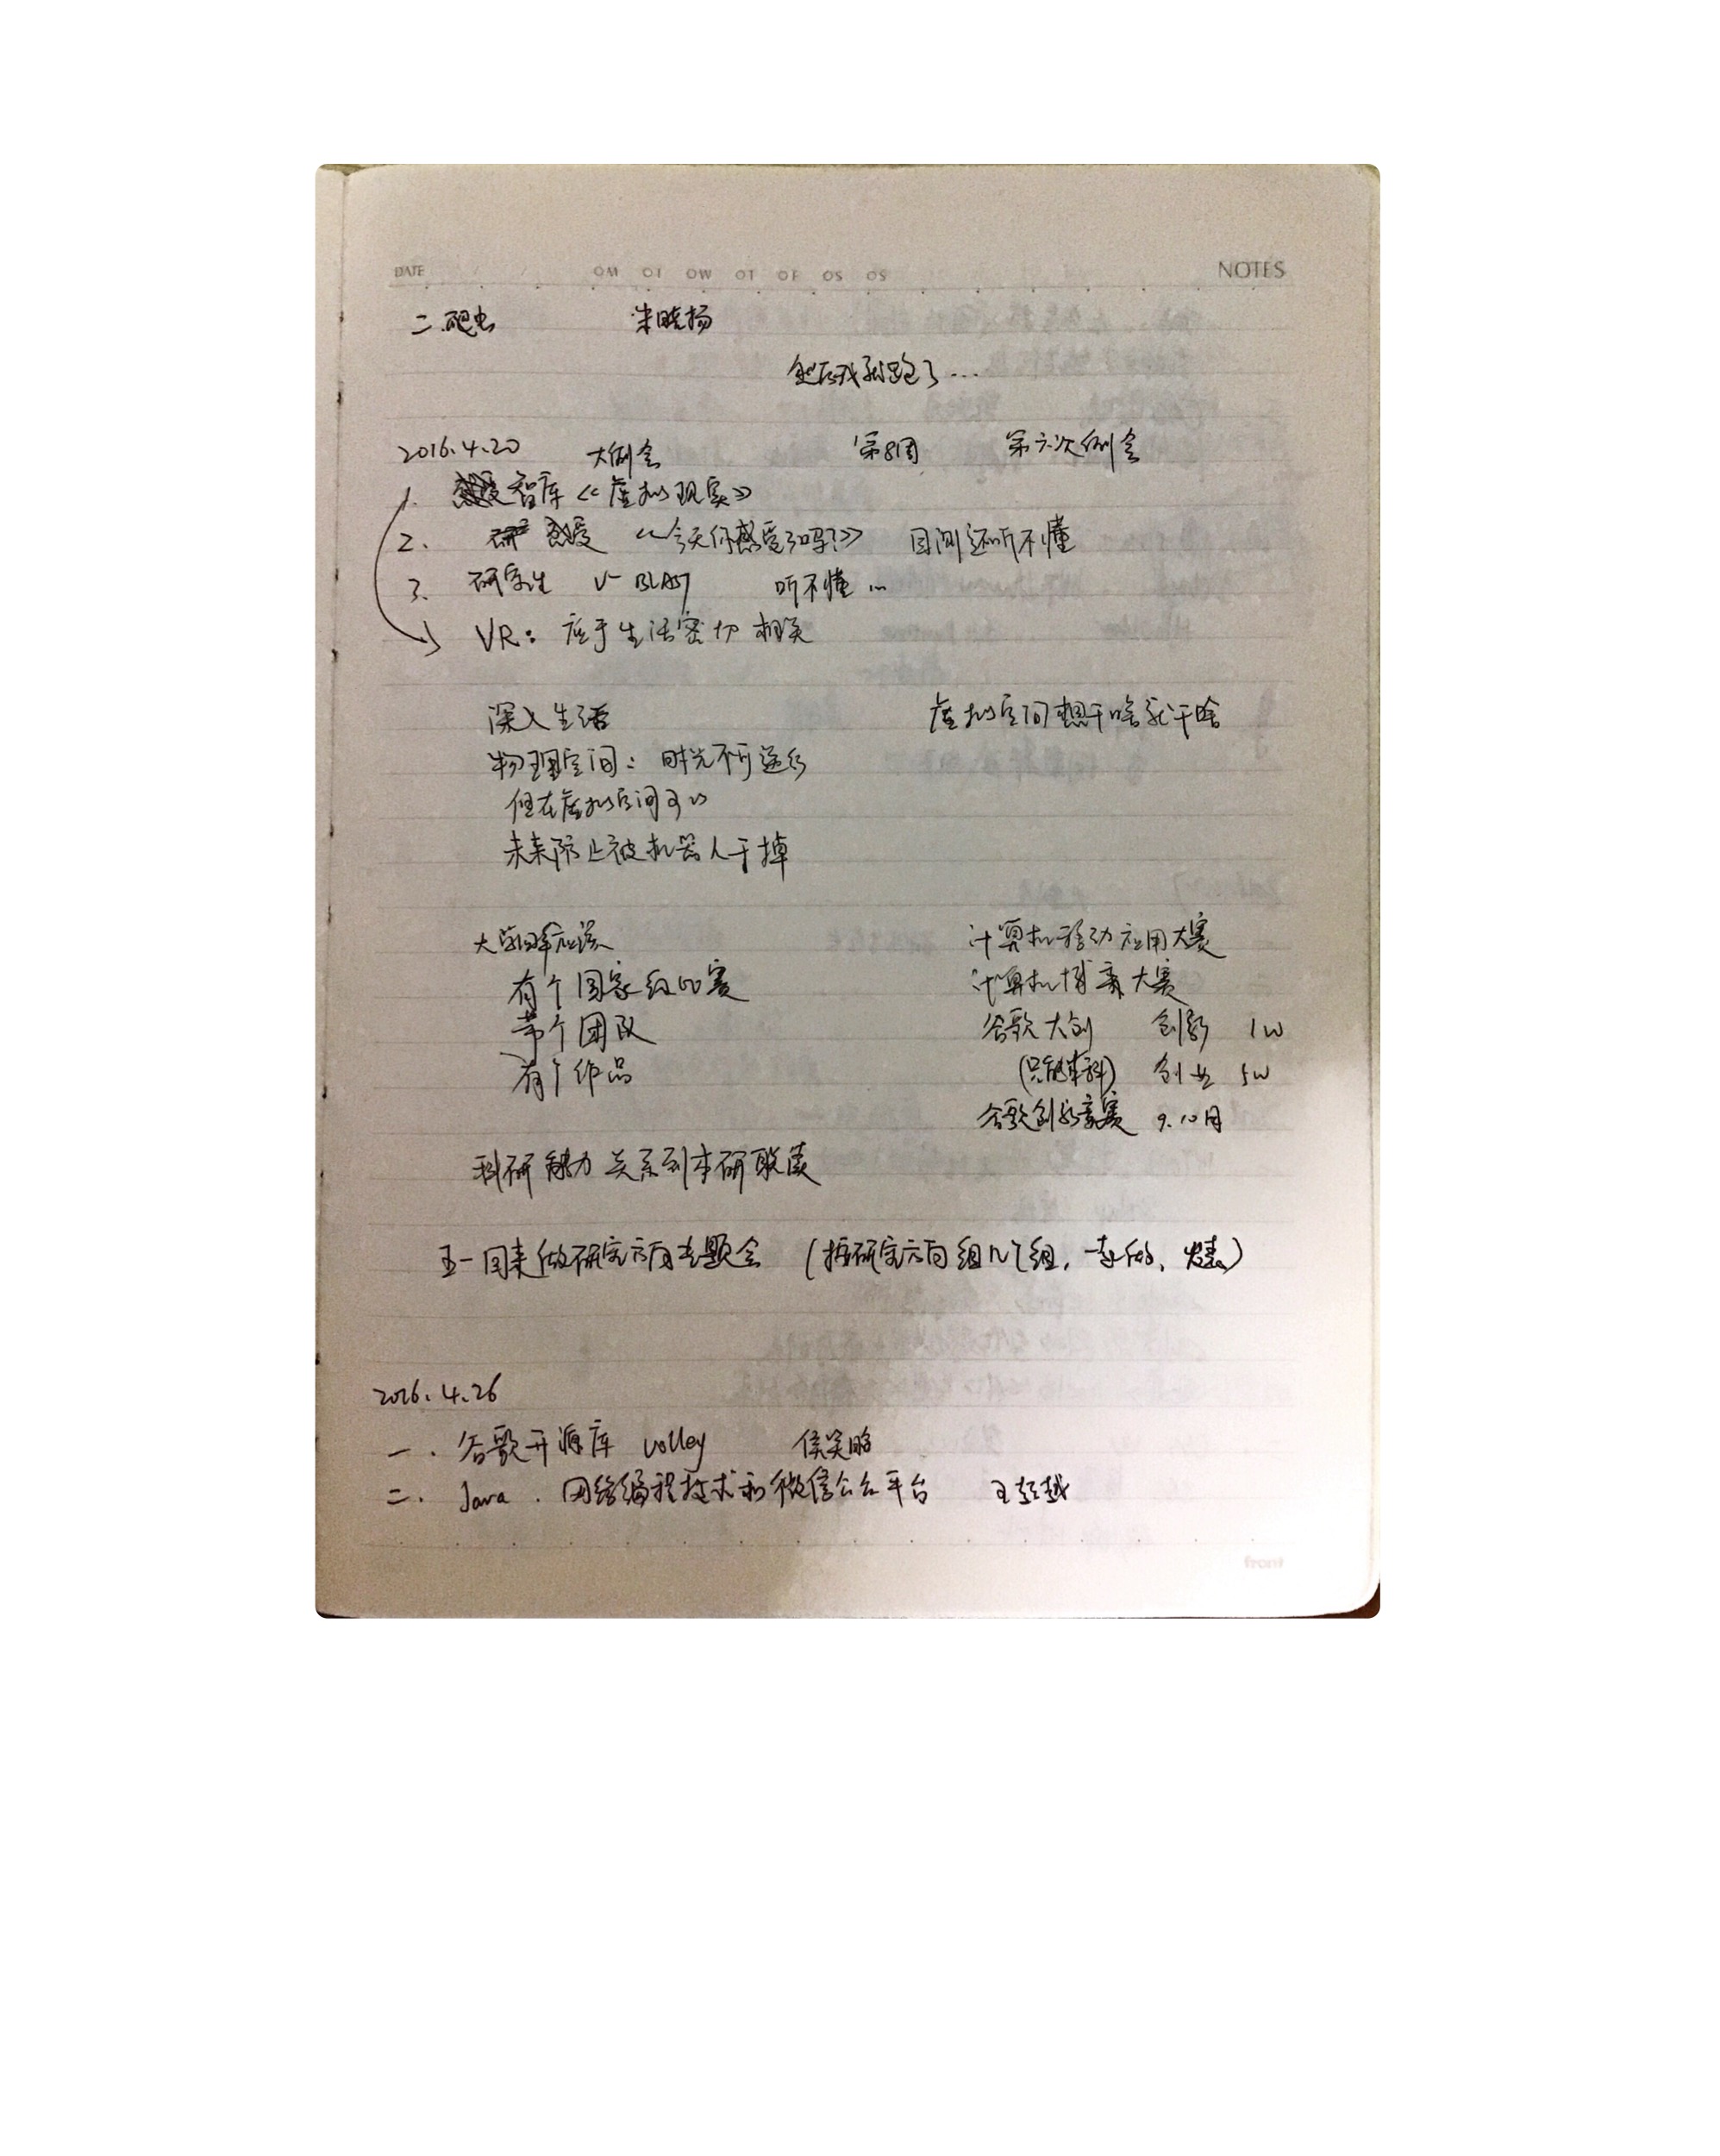 DATE / / OM OT OW OT OF OS OS NOTES
二.爬虫 朱晓扬
然后我就跑了...
2016.4.20 大例会 第8周 第六次例会
1. 智库《虚拟现实》
2. 感受 《今天你感受了吗?》 目测还听不懂
3. 研究生 V-BLAST 听不懂...
VR: 应于生活密切相关
深入生活 虚拟空间想干啥就干啥
物理空间: 时光不可逆行
但在虚拟空间可以
未来防止被机器人干掉
大学四年应该 计算机移动应用大赛
有个国家级比赛 计算机博弈大赛
带个团队 谷歌大创 创新 1w
有个作品 (只能本科) 创业 5w
谷歌创新大赛 9.10月
科研能力关系到本研联读
五一回来做研究方向专题会 (按研究方向组几个组,一起做、)
2016.4.26
一. 谷歌开源库 volley 侯笑晗
二. Java. 网络编程技术和微信公众平台 王赵越
front